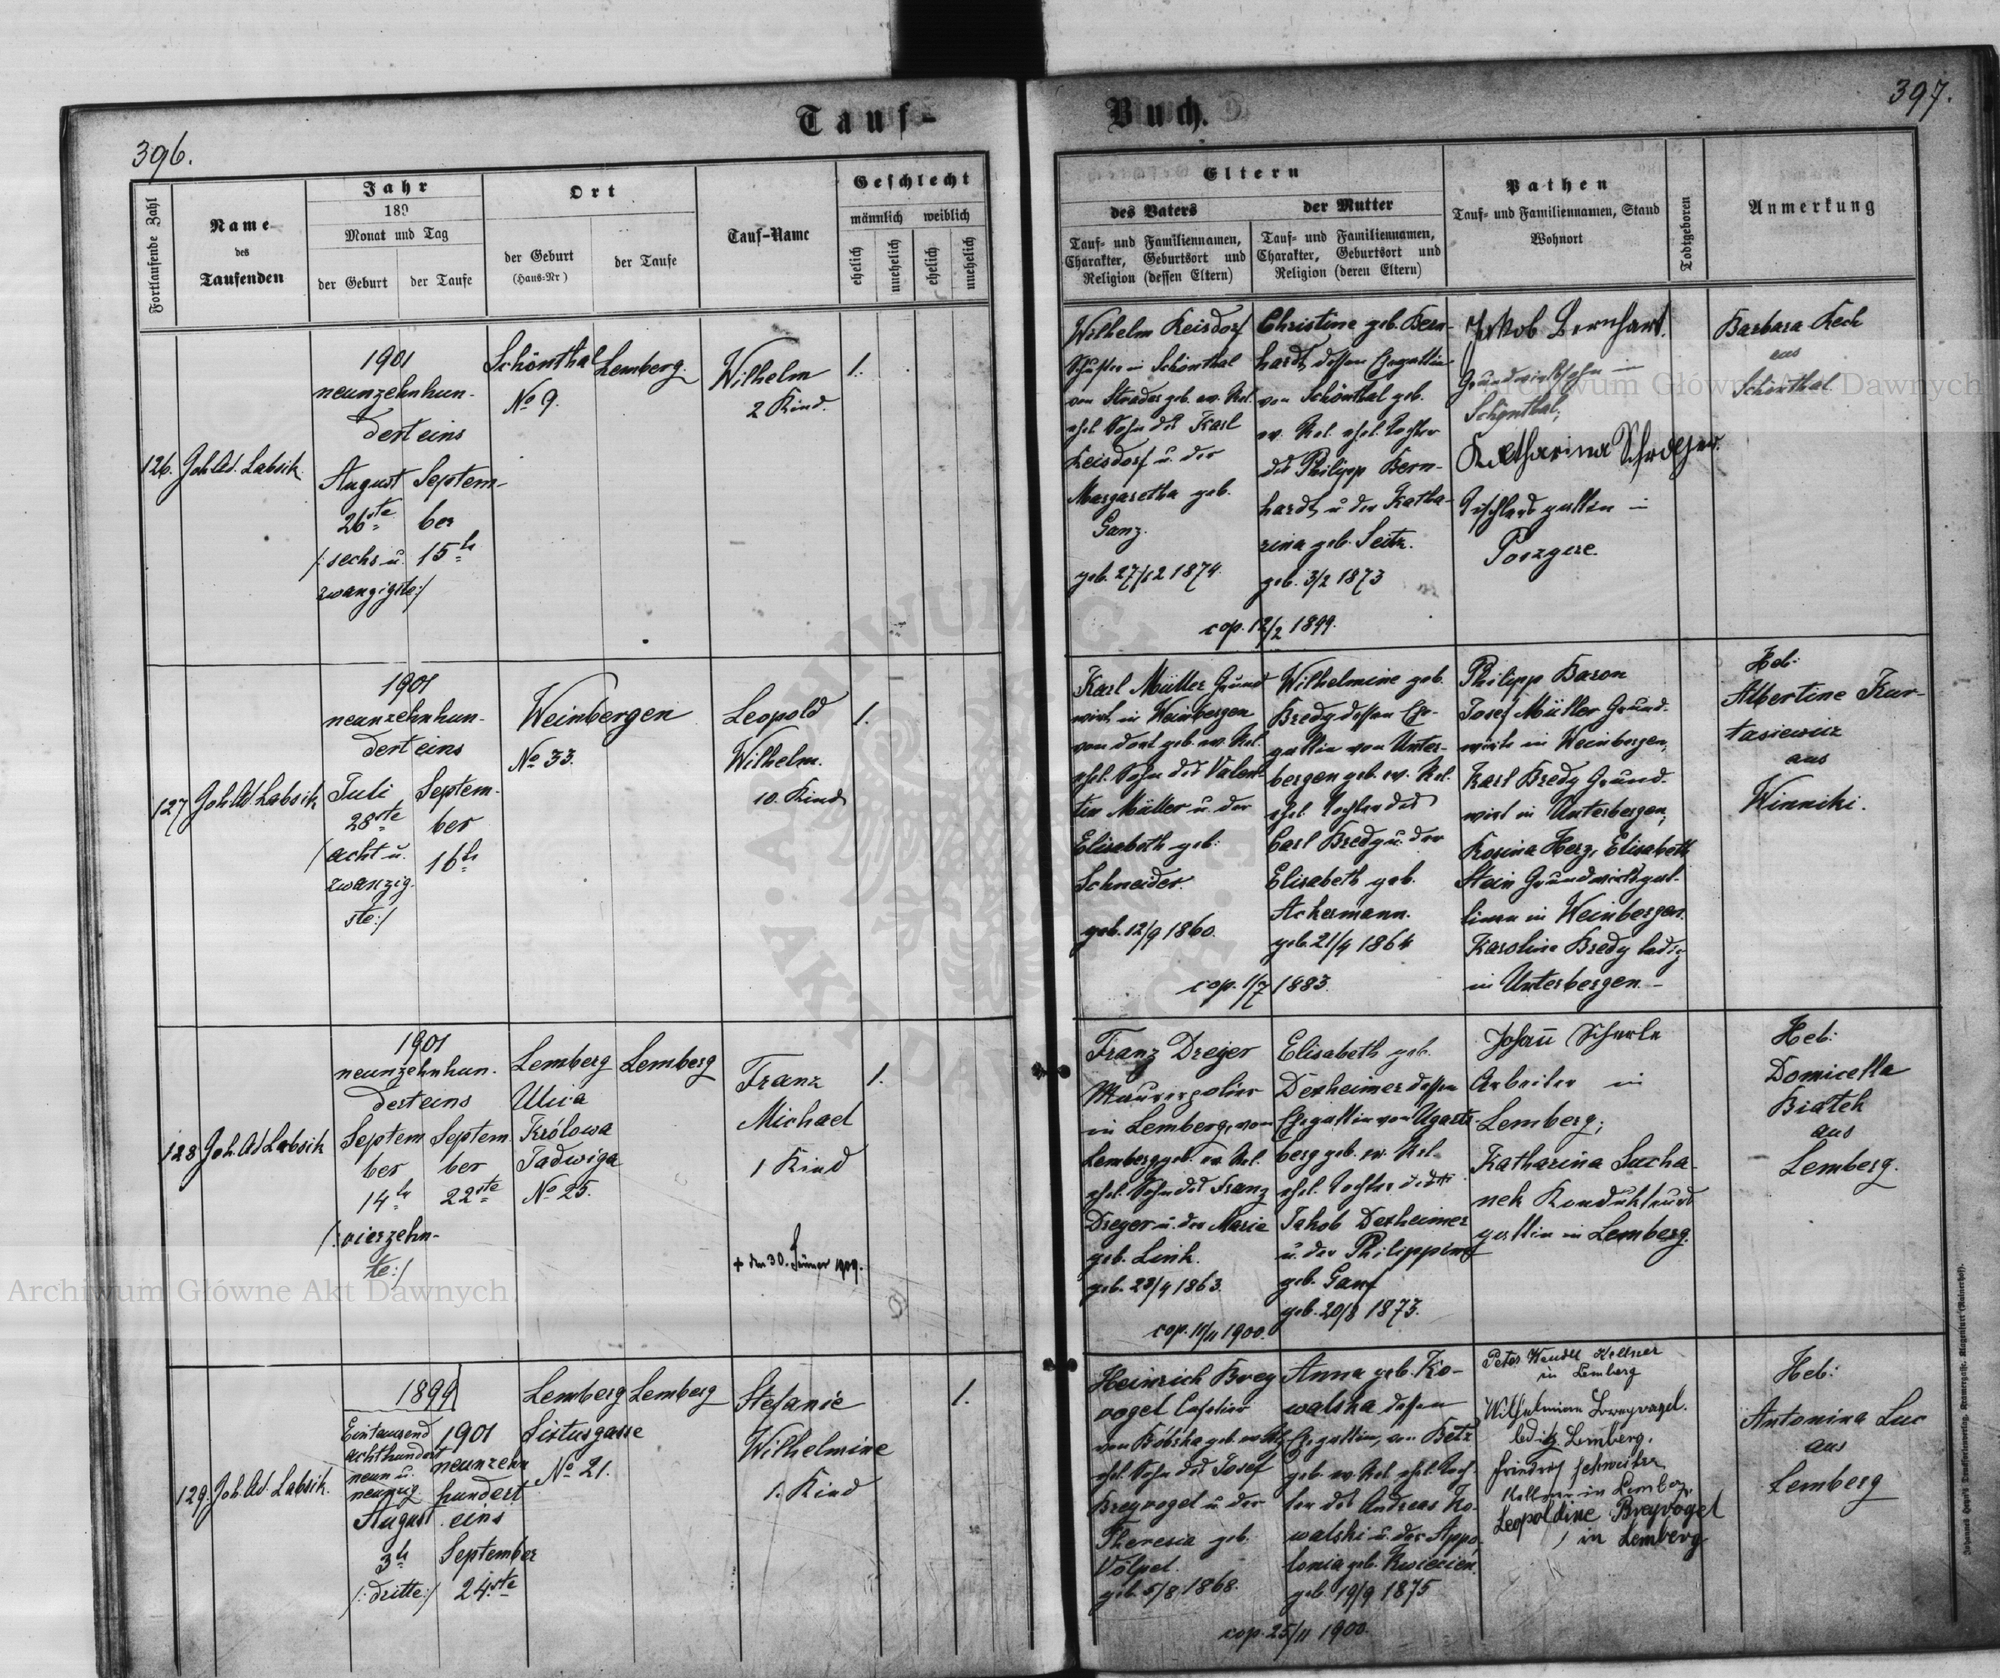 396.
Tauf-
Buch.
397.
Fortlaufende Zahl
Name
des
Taufenden
Jahr
189
Monat und Tag
der Geburt
der Taufe
Ort
der Geburt
(Haus-Nr)
der Taufe
Tauf-Name
Geschlecht
männlich
weiblich
ehelich
unehelich
ehelich
unehelich
Eltern
des Vaters
Tauf- und Familiennamen,
Charakter, Geburtsort und
Religion (dessen Eltern)
der Mutter
Tauf- und Familiennamen,
Charakter, Geburtsort und
Religion (deren Eltern)
Pathen
Tauf- und Familiennamen, Stand
Wohnort
Todtgeboren
Anmerkung
126. Joh. Ad. Labsik
1901
neunzehnhun-
dert eins
August
26ste
/: sechs u.
zwanzigste:/
Septem-
ber
15te
Schönthal
No 9.
Lemberg.
Wilhelm
2 Kind.
1.
Wilhelm Keisdorf
in Schönthal
geb. ev. Rel.
ehel. Sohn des Karl
Keisdorf u. der
Margaretha geb.
Ganz.
geb. 27/12 1874.
Christine geb. Bern-
hardt dessen Ehegattin
von Schönthal geb.
ev. Rel. ehel. Tochter
des Philipp Bern-
hardt u. der Katha-
rina geb. Seitz.
geb. 3/2 1873
cop. 12/2 1899.
Jakob Bernhart.
Grundwirtssohn in
Schönthal;
Katharina
Tischlersgattin in
Barbara Kech
aus
Schönthal
127 Joh. Ad. Labsik
1901
neunzehnhun-
dert eins
Juli
28ste
/acht u.
zwanzig-
ste:/
Septem-
ber
16te
Weinbergen
No 33.
Leopold
Wilhelm.
10. Kind
1.
Karl Müller Grund
wirt in Weinbergen
von dort geb. ev. Rel.
ehel. Sohn des Valen-
tin Müller u. der
Elisabeth geb.
Schneider.
geb. 12/9 1860.
Wilhelmine geb.
Bredy dessen Ehe-
gattin von Unter-
bergen geb. ev. Rel.
ehel. Tochter des
Carl Bredy u. der
Elisabeth geb.
Ackermann.
geb. 21/4 1864
cop. 1/7 1883.
Philipp Baron
Josef Müller Grund-
wirte in Weinbergen,
Karl Bredy Grund-
wirt in Unterbergen;
Rosina Herz, Elisabeth
Stein Grundwirtsgat-
tinen in Weinbergen.
Karoline Bredy ledig
in Unterbergen. -
Heb:
Albertine Kur-
tasiewicz
aus
Winniki.
128 Joh. Ad. Labsik
1901
neunzehnhun-
dert eins
Septem
ber
14te
/: vierzehn-
te:/
Septem
ber
22ste
Lemberg
Ulica
Królowa
Jadwiga
No 25.
Lemberg
Franz
Michael
1 Kind
+ den 30. Jänner 1909.
1.
Franz Dreger
Maurerpolier
in Lemberg, von
Lemberg geb. ev. Rel.
ehel. Sohn des Franz
Dreger u. der Marie
geb. Link.
geb. 23/4 1863.
Elisabeth geb.
Dexheimer dessen
Ehegattin von Ugarts-
berg geb. ev. Rel.
ehel. Tochter des
Jakob Dexheimer
u. der Philippine
geb. Ganz
geb. 20/8 1873.
cop. 11/11 1900.
Johann Scherle
Arbeiter in
Lemberg;
Katharina Sucha-
nek Kondukteurs
gattin in Lemberg.
Heb:
Domicella
Białek
aus
Lemberg.
129. Joh. Ad. Labsik.
1899
Eintausend
achthundert
neun u.
neunzig
August
3te
/: dritte:/
1901
neunzehn
hundert
eins
September
24ste
Lemberg
Sixtusgasse
No 21.
Lemberg
Stefanie
Wilhelmine
1. Kind
1.
Heinrich Brey
vogel Cafetier
von Bóbrka geb. ev. Rel.
ehel. Sohn des Josef
Breyvogel u. der
Theresia geb.
Völpel.
geb. 5/8 1868.
Anna geb. Ko-
walska dessen
Ehegattin, von Bełz
geb. ev. Rel. ehel. Toch-
ter des Andreas Ko-
walski u. der Appo-
lonia geb. Kwiecien.
geb. 19/9 1875
cop. 25/11 1900.
Peter Kendel Kellner
in Lemberg
Wilhelmine Breyvogel.
ledig Lemberg.
Friedrich Schweitzer
Kellner in Lemberg,
Leopoldine Breyvogel
in Lemberg
Heb:
Antonina Luc
aus
Lemberg
Archiwum Główne Akt Dawnych
Archiwum Główne Akt Dawnych